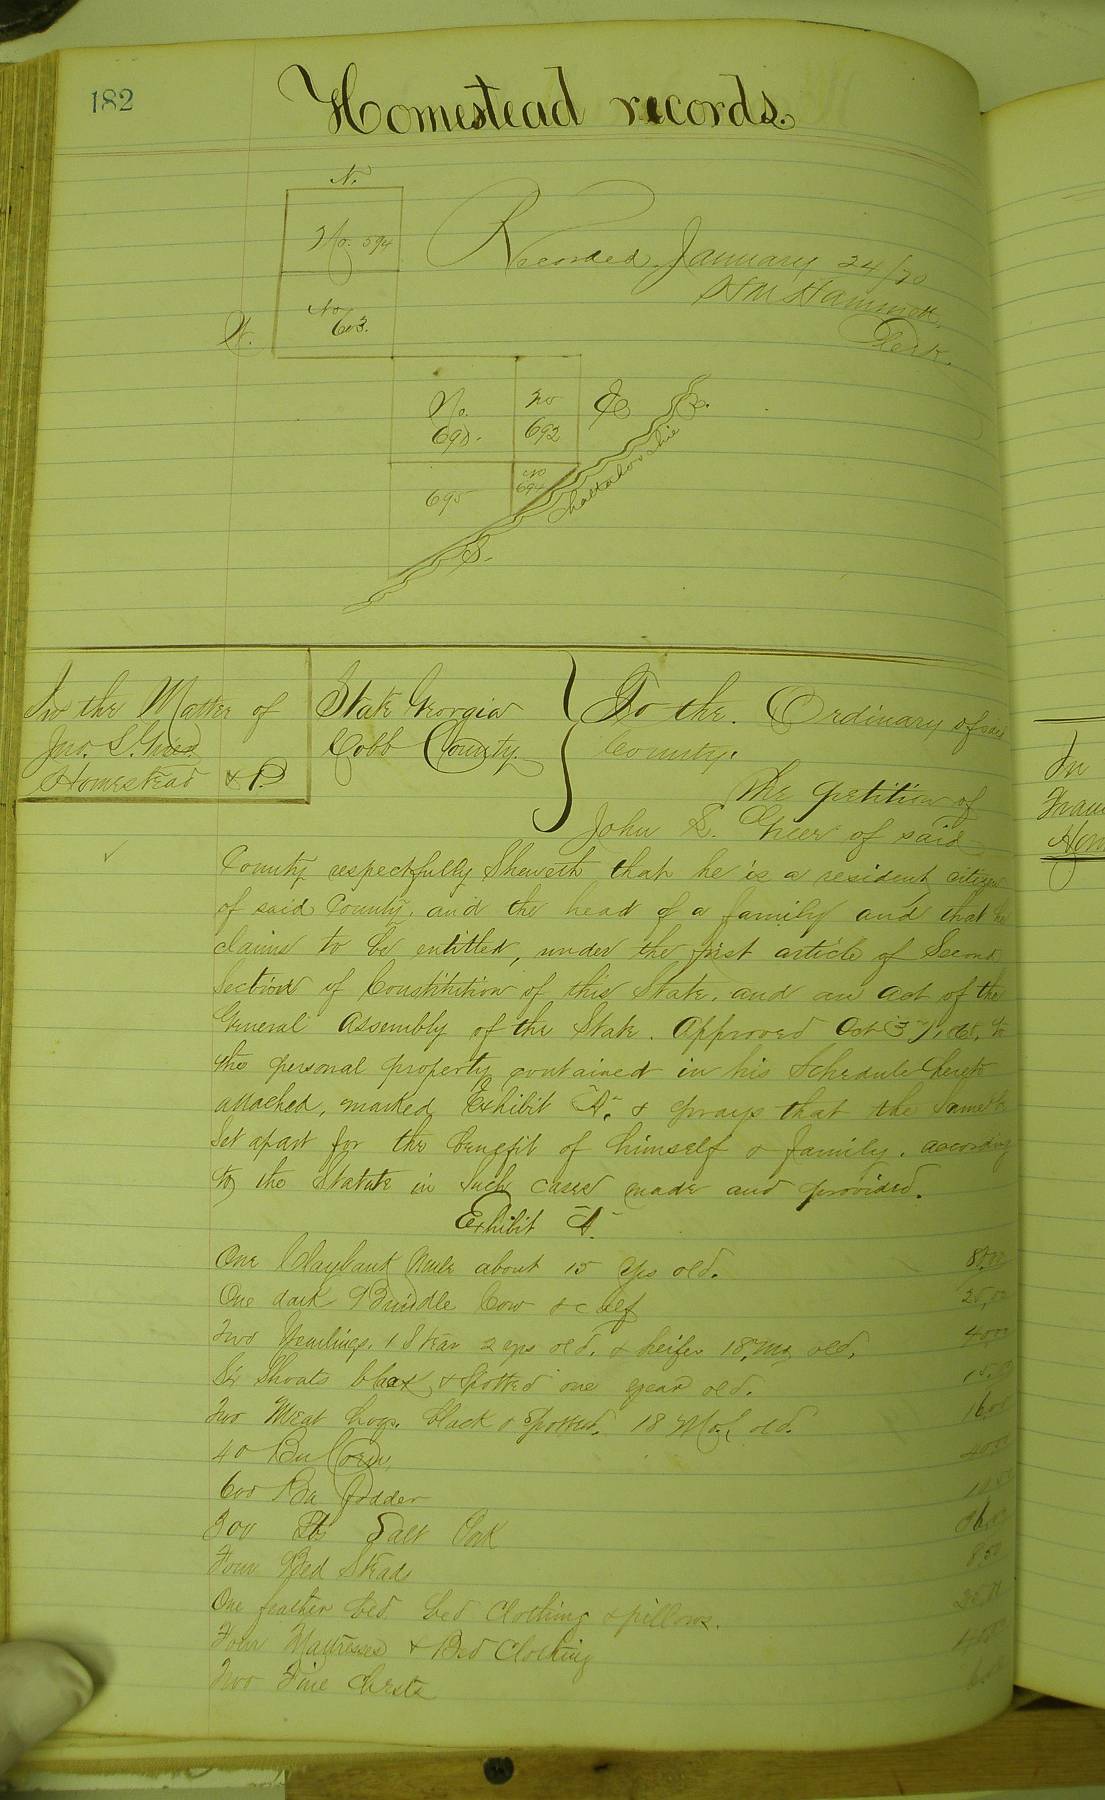 182
Homestead records.
N.
No. 594
Recorded January 24/70
H M Hammett,
Clerk.
No
603.
W.
No.
690.
No
692
E
R.
695
No
694
Chattahoochie
S.
In the Matter of
Jno. S. Greer
Homestead & P.
State Georgia
Cobb County.
To the Ordinary of said
County.
The petition of
John S. Greer of said
County respectfully Sheweth that he is a resident citizen
of said County, and the head of a family and that he
claims to be entitled, under the first article of Second
Section of Constitution of this State. and an act of the
General Assembly of the State. Approved Oct 3
the personal property contained in his Schedule hereto
attached, marked Exhibit "A". & prays that the same be
Set apart for the benefit of himself & family. according
to the Statute in Such cases made and provided.
Exhibit "A".
One Claybank Mule about 15 yrs old.
One dark Brindle Cow & calf 25,00
Two Yearlings. 1 Stear 2 yrs old. & heifer 18 Mo, old.
Six Shoats black & Spotted one year old.
Two Meat hogs. black & Spotted. 18 Mo. old. 16.00
40 Bu Corn,
600 Bu fodder
300 lbs Salt Pork
Four Bed Steads 8 50
One feather bed. bed Clothing & pillows.
Four Mattresses & Bed Clothing
Two Pine Chests
In